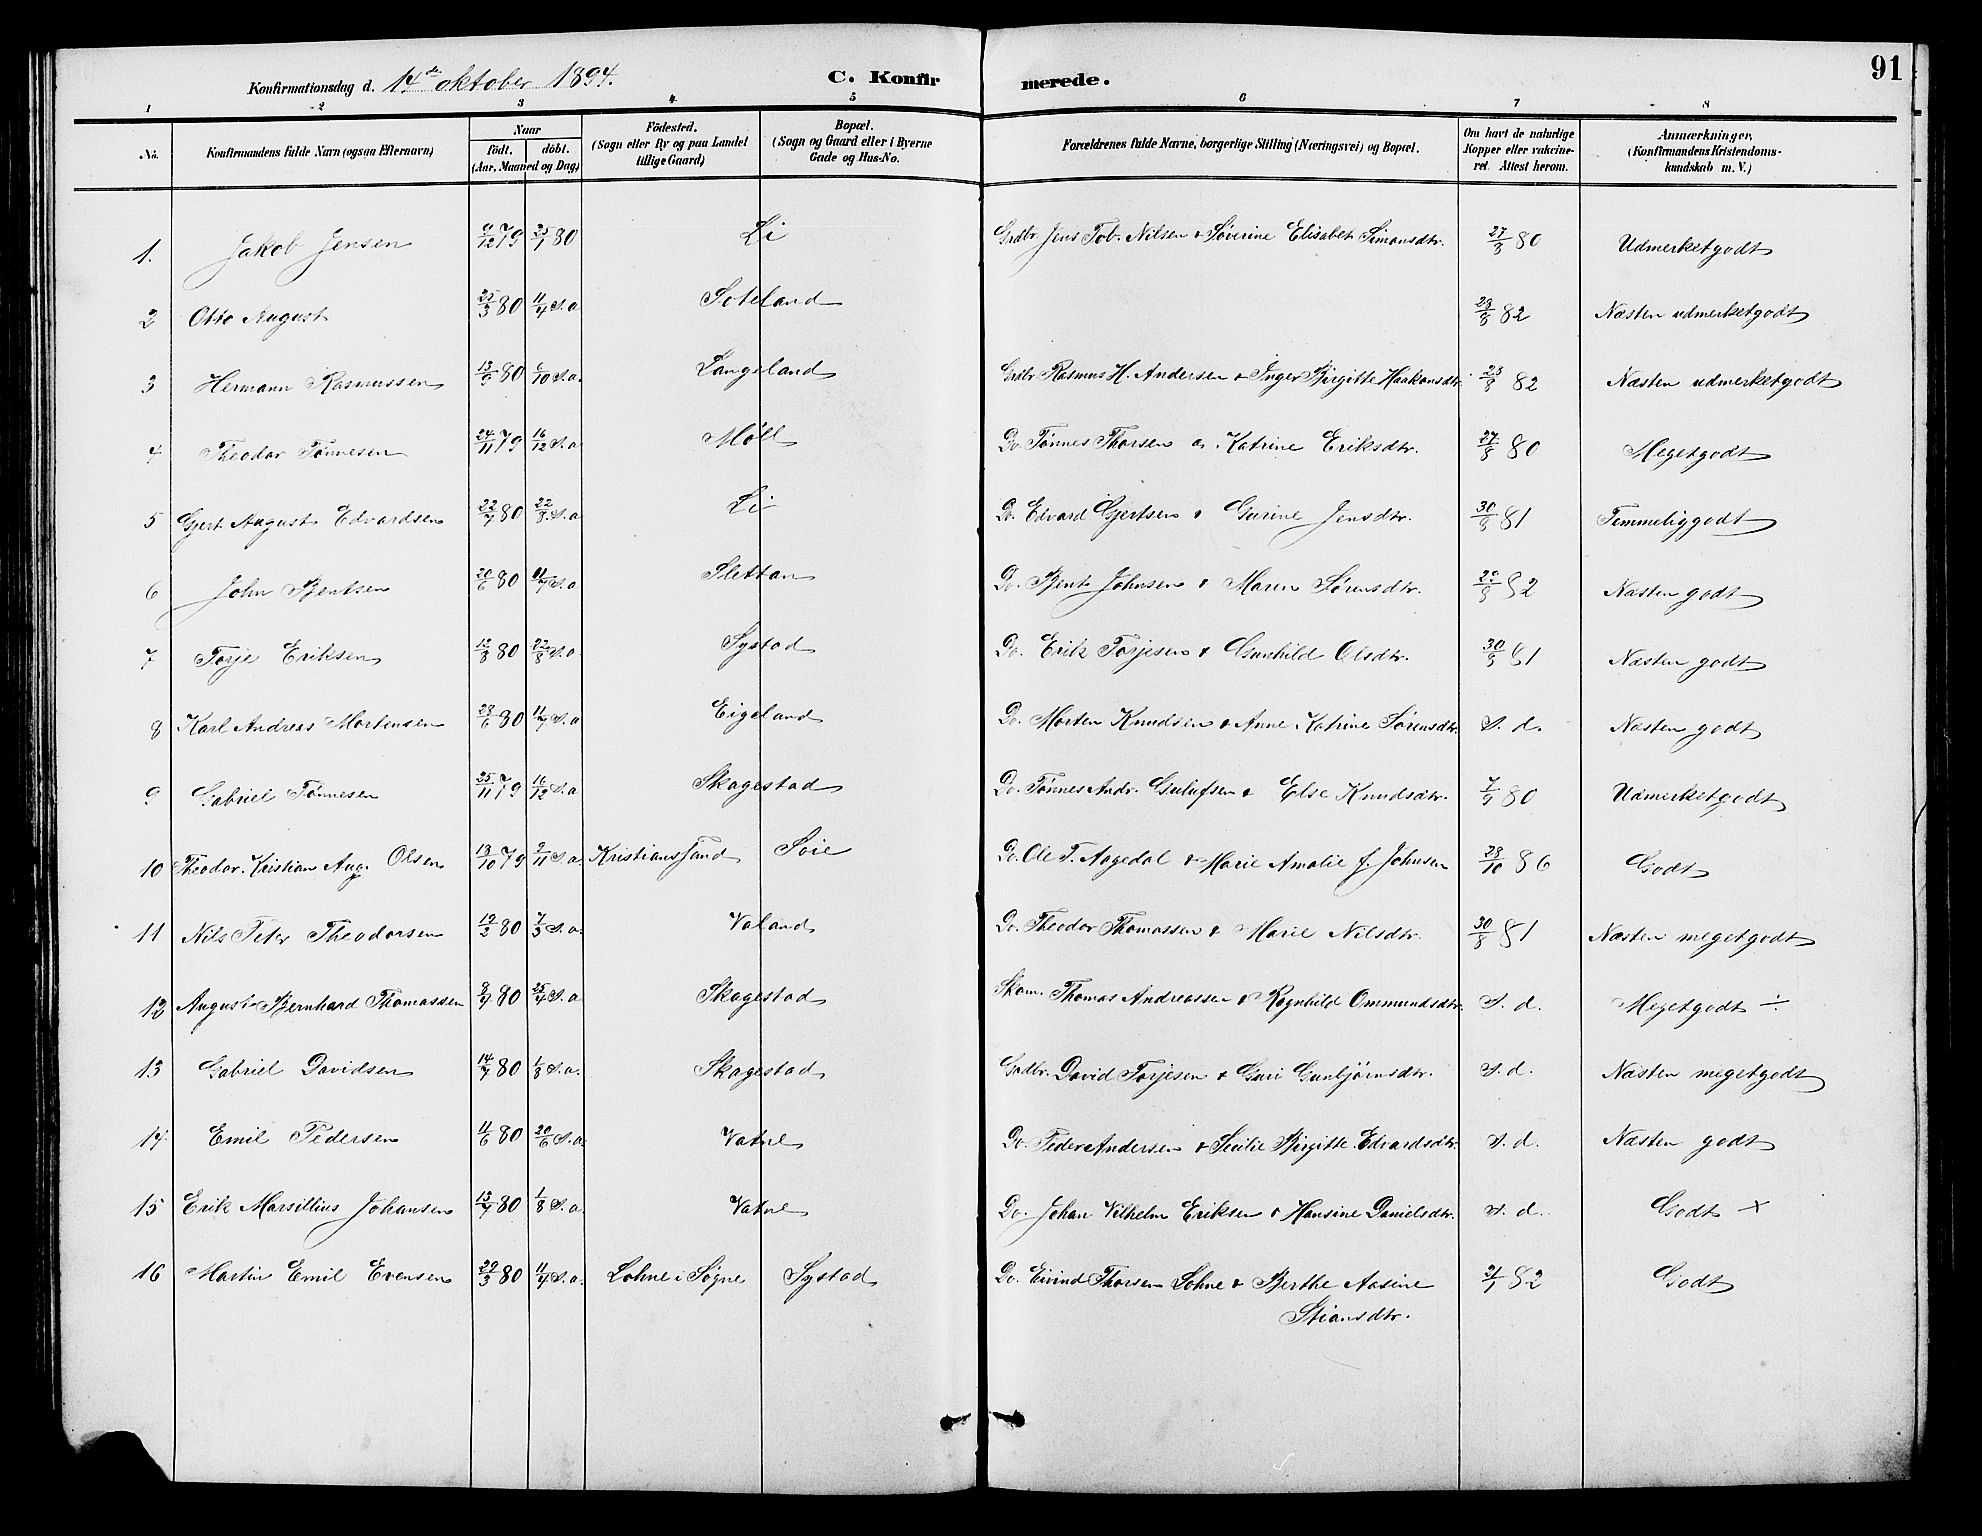 91
Konfirmationsdag d. 14de oktober 1894. C. Konfirmerede.
1 2 3 4 5 6 7 8
No. Konfirmandens fulde Navn (ogsaa Efternavn) Naar födt. döbt. (Aar, Maaned og Dag) Födested. (Sogn eller By og paa Landet tillige Gaard) Bopæl. (Sogn og Gaard eller i Byerne Gade og Hus-No. Forældrenes fulde Navne, borgerlige Stilling (Næringsvei) og Bopæl. Om havt de naturlige Kopper eller vakcineret. Attest herom. Anmærkninger. (Konfirmandens Kristendomskundskab m. V.)
1. Jakob Jensen 9/12 79 25/1 80 Li Grdbr. Jens Tob. Nilsen & Søverine Elisabet Simonsdtr. 27/8 80 Udmerketgodt
2 Otto August 25/3 80 11/4 s.a Soteland 29/8 82 Næsten udmerketgodt
3 Hermann Rasmussen 13/9 80 /10 s.a. Langeland Grdbr Rasmus H. Andersen & Inger Birgitte Haakonsdtr. 82 Næsten udmerketgodt
4 Theodor Tønnesen 24/11 79 16/12 s.a Møll Do. Tønnes Thorsen & Katrine Eriksdtr. 27/8 80 Megetgodt
5 Gjert August Edvardsen 22/7 80 22/8 s.a Li Do. Edvard Gjertsen & Gurine Jensdtr. 30/8 81 Temmeliggodt
6 John Bentsen 20/6 80 11/7 s.a Slettan Do. Bent Johnsen & Maren Sørensdtr. 29/8 82 Næsten godt
7 Torje Eriksen 12/8 80 22/8 s.a Systad Do. Erik Torjesen & Gunhild Olsdtr. 30/8 81 Næsten godt
8 Karl Andreas Mortensen 28/6 80 11/7 s.a Eigeland Do. Morten Knudsen & Anne Katrine Sørensdtr. s. d. Næsten godt
9 Gabriel Tønnesen 25/11 79 16/12 s.a Skagestad Do. Tønnes Andr. Gulufsen & Else Knudsdtr. 7/9 80 Udmerketgodt
10 Theodor Kristian Aug. Olsen 13/10 79 2/11 s.a Kristianssand Søie Do. Ole T. Aagedal & Marie Amalie f. Johnsen 28/10 86 Godt
11 Nils Peter Theodorsen 19/2 80 7/3 s.a. Valand Do. Theodor Thomassen & Marie Nilsdtr. 30/8 81 Næsten megetgodt
12 August Bernhard Thomassen 8/4 80 25/4 s.a Skagestad Skom. Thomas Andreassen & Ragnhild Ommundsdtr. s. d. Megetgodt ÷
13 Gabriel Davidsen 14/7 80 1/8 s.a. Skagestad Gadbr. David Torjesen & Guri Gunbjørnsdtr. s. d. Næsten megetgodt
14 Emil Pedersen 11/6 80 20/6 s.a. Vatne Do. Peder Andersen & Secilie Birgitte Edvardsdtr. s. d. Næsten godt
15 Erik Marsillius Johansen 13/7 80 1/8 s.a. Vatne Do. Johan Vilhelm Eriksen & Hansine Danielsdtr. s. d. Godt ×
16 Martin Emil Evensen 29/3 80 11/4 s.a. Lohne i Søgne Systad Do. Eivind Thorsen Lohne & Berthe Aasine 82 Godt
Stiansdtr.